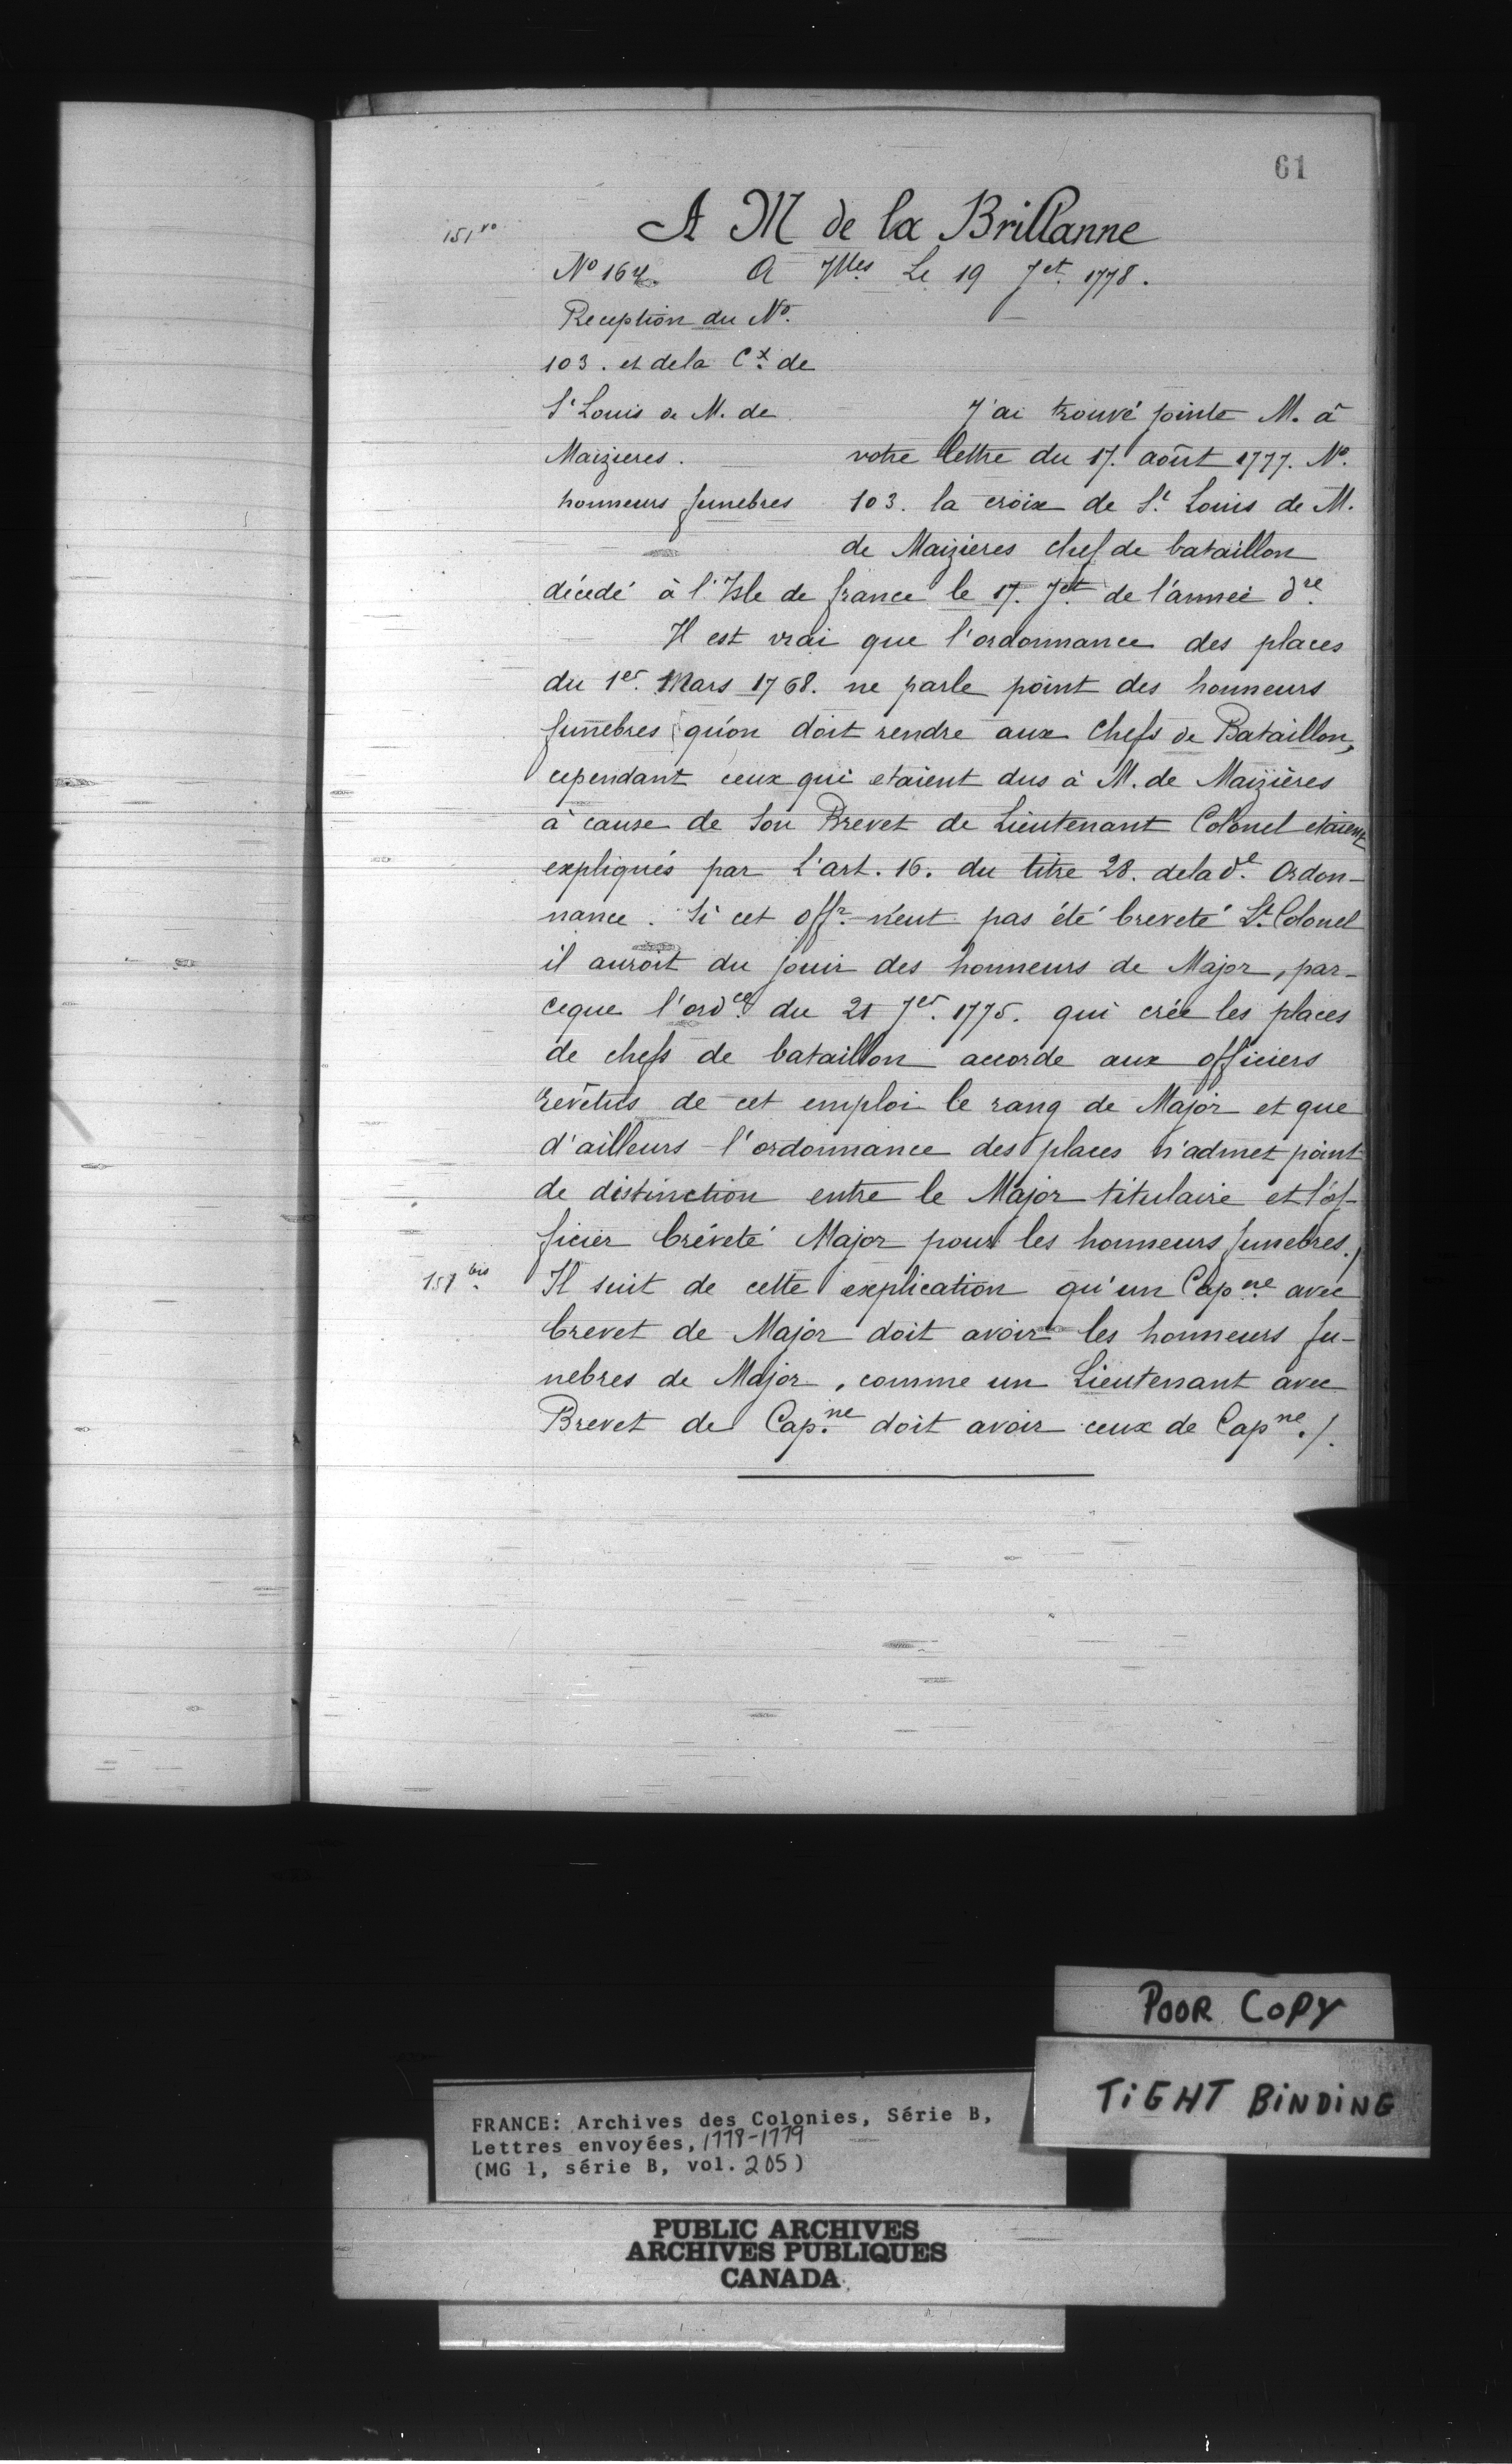 61
151 vo
A M de la Brillanne
No 164. A Vlles Le 19 Jet. 1778.
Reception du No.
103. et dela Cx. de
St Louis de M. de
Maizieres.
honneurs funebres
J'ai trouvé jointe M. à
votre lettre du 17. août 1777. No.
103. la croix de St. Louis de M.
de Maizieres chef de bataillon
décédé à l'Isle de france le 17. Jet. de l'année dre.
Il est vrai que l'ordonnance des places
du 1er. Mars 1768. ne parle point des honneurs
funebres qu'on doit rendre aux Chefs de Bataillon,
cependant ceux qui etaient dus à M. de Maizières
à cause de son Brevet de Lieutenant Colonel etaient
expliqués par l'art. 16. du titre 28. dela de. Ordon-
nance. Si cet offr. n'eut pas été breveté Lt. Colonel
il auroit du jouir des honneurs de Major, par-
ceque l'ordce. du 21 Jer. 1775. qui crée les places
de chefs de bataillon accorde aux officiers
revêtus de cet emploi le rang de Major et que
d'ailleurs l'ordonnance des places n'admet point
de distinction entre le Major titulaire et l'of-
ficier bréveté Major pour les honneurs funebres./
151 bis
Il suit de cette explication qu'un Capne. avec
brevet de Major doit avoir les honneurs fu-
nebres de Major, comme un Lieutenant avec
Brevet de Capne. doit avoir ceux de Capne./.
POOR COPY
TIGHT BINDING
FRANCE: Archives des Colonies, Série B,
Lettres envoyées, 1778-1779
(MG 1, série B, vol. 205)
PUBLIC ARCHIVES
ARCHIVES PUBLIQUES
CANADA